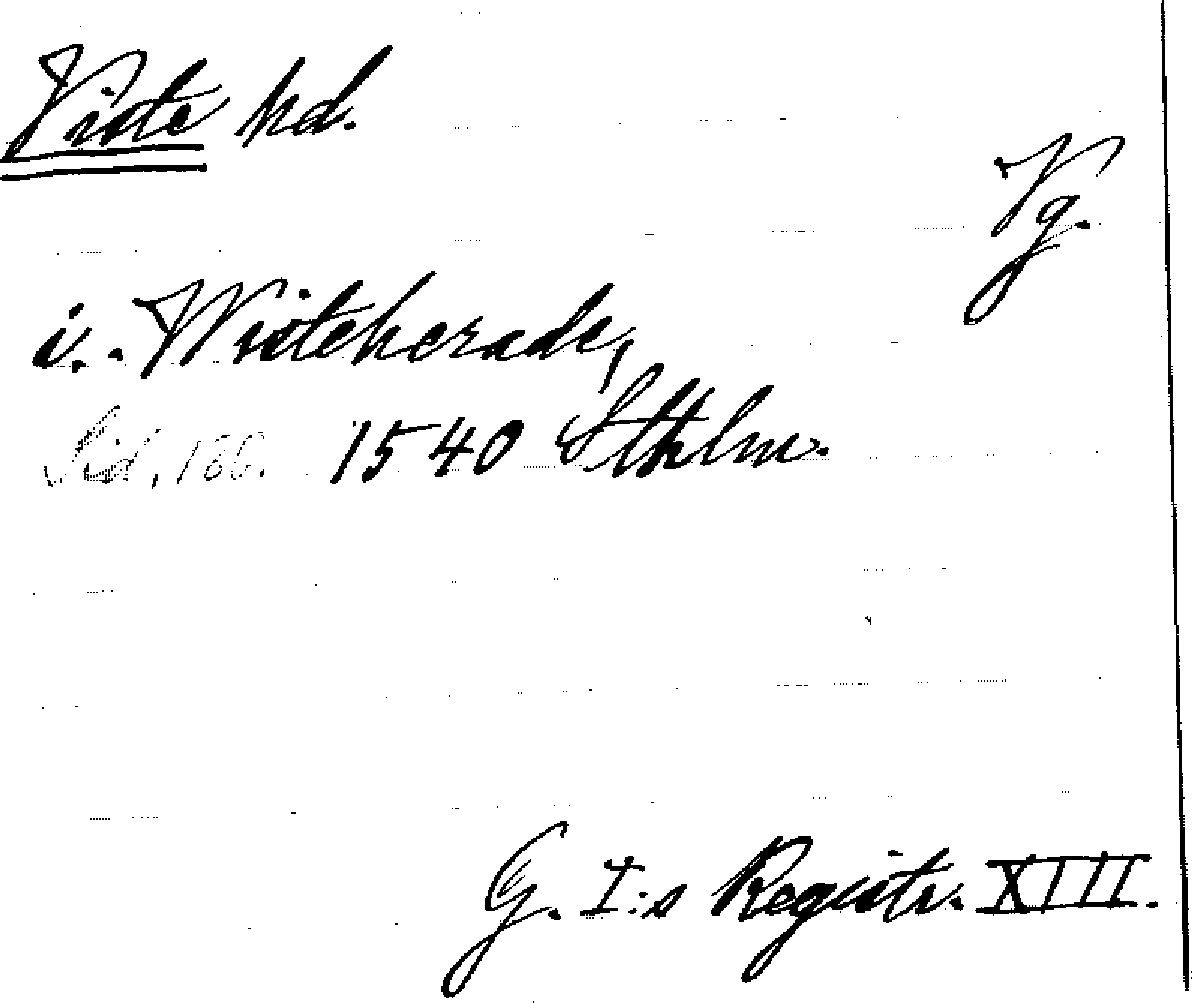 Viste hd.
Vg.
i. Wisteherade,
Sid. 180. 1540 Sthlm.
G. I:s Registr. XIII.